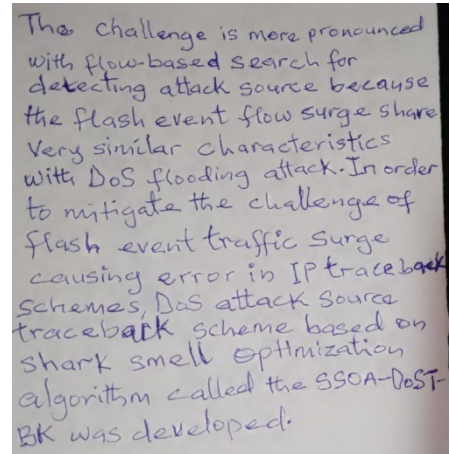 The challenge is more pronounced
with flow-based search for
detecting attack source because
the flash event flow surge share
very similar characteristics
with DoS flooding attack. In order
to mitigate the challenge of
flash event traffic surge
causing error in IP traceback
schemes, DoS attack source
traceback scheme based on
shark smell optimization
algorithm called the SSOA-DoST-
BK was developed.